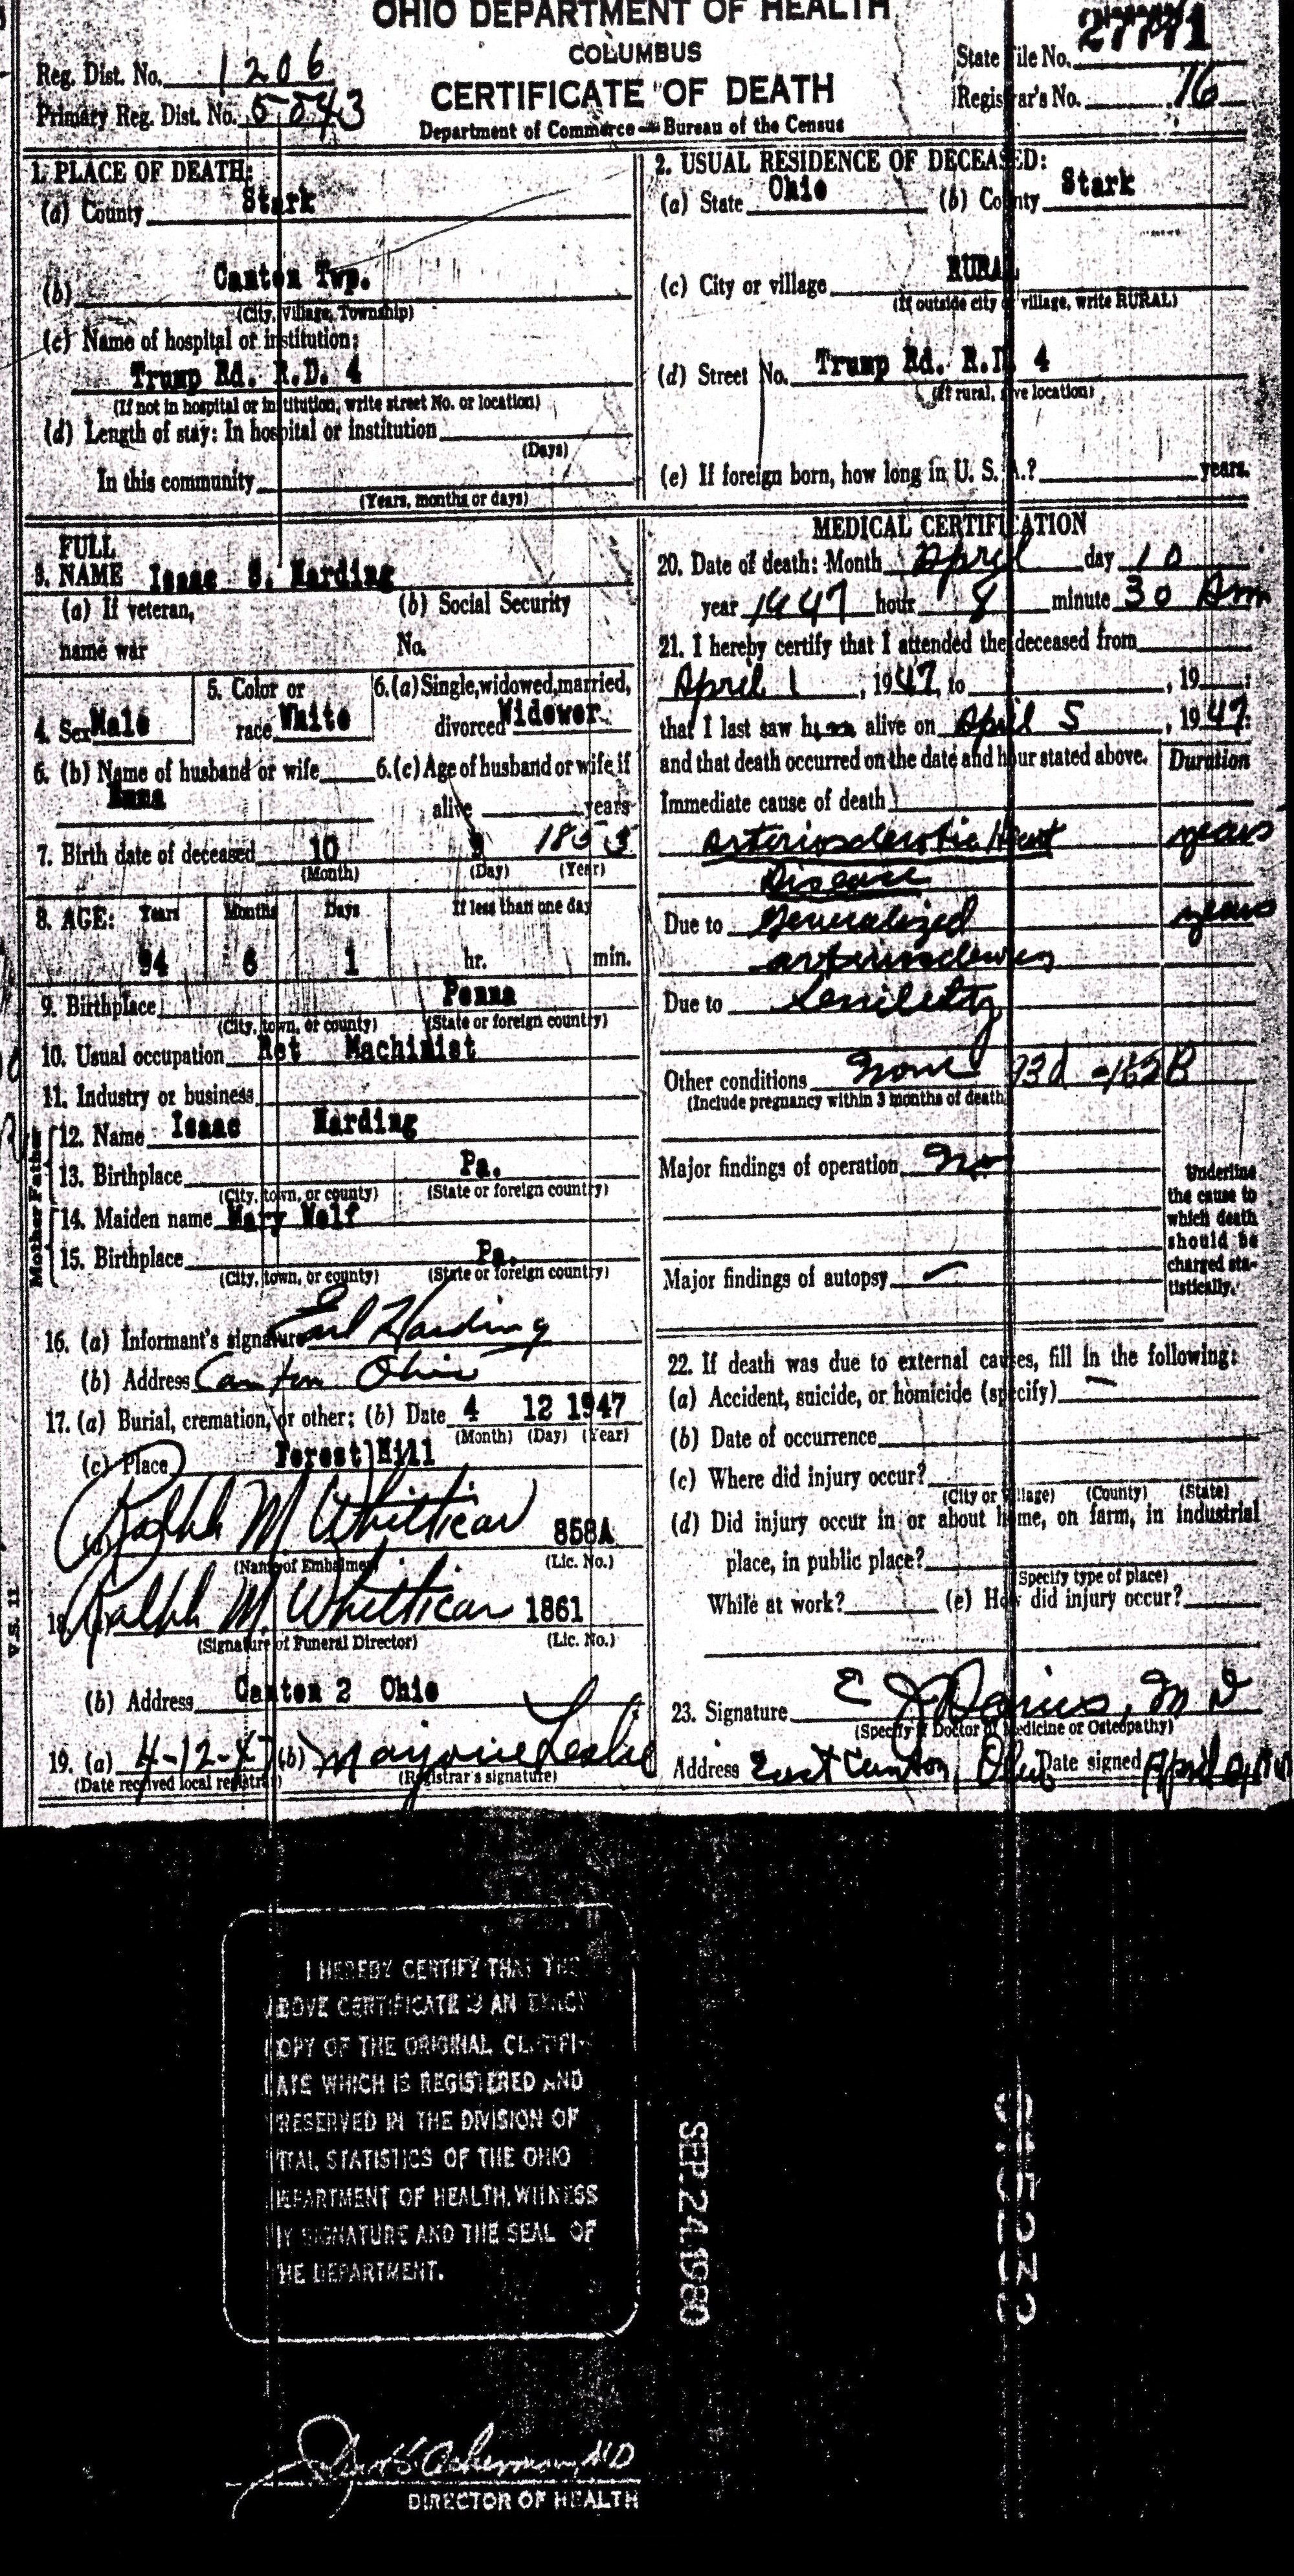 OHIO DEPARTMENT OF HEALTH
COLUMBUS
CERTIFICATE OF DEATH
Department of Commerce—Bureau of the Census
Reg. Dist. No. 1206
Primary Reg. Dist. No.
State File No. 27771
Registrar's No. 76
1. PLACE OF DEATH:
(a) County Stark
(b) Canton Twp.
(City, Village, Township)
(c) Name of hospital or institution:
Trump Rd. R.D. 4
(If not in hospital or institution, write street No. or location)
(d) Length of stay: In hospital or institution
(Days)
In this community
(Years, months or days)
2. USUAL RESIDENCE OF DECEASED:
(a) State Ohio (b) County Stark
(c) City or village RURAL
(If outside city or village, write RURAL)
(d) Street No. Trump Rd. R.D. 4
(If rural, give location)
(e) If foreign born, how long in U. S. A.? years.
FULL
3. NAME Isaac S. Harding
(a) If veteran, (b) Social Security
name war No.
4. Sex Male 5. Color or race White 6. (a) Single, widowed, married, divorced Widower
6. (b) Name of husband or wife 6. (c) Age of husband or wife if
Emma alive years
7. Birth date of deceased 10 9 185
(Month) (Day) (Year)
8. AGE: Years Months Days If less than one day
94 6 1 hr. min.
9. Birthplace Penna
(City, town, or county) (State or foreign country)
10. Usual occupation Ret Machinist
11. Industry or business
Father
12. Name Isaac Harding
13. Birthplace Pa.
(City, town, or county) (State or foreign country)
Mother
14. Maiden name Mary Wolf
15. Birthplace Pa.
(City, town, or county) (State or foreign country)
16. (a) Informant's signature Earl Harding
(b) Address Canton Ohio
17. (a) Burial, cremation, or other; (b) Date 4 12 1947
(Month) (Day) (Year)
(c) Place Forest Hill
(d) Ralph M. Whitticar 858A
(Name of Embalmer) (Lic. No.)
18. (a) Ralph M. Whitticar 1861
(Signature of Funeral Director) (Lic. No.)
(b) Address Canton 2 Ohio
19. (a) 4-12-47 (b) Marjorie Leslie
(Date received local registrar) (Registrar's signature)
V.S. 11
MEDICAL CERTIFICATION
20. Date of death: Month April day 10
year 1947 hour 8 minute 30 Am
21. I hereby certify that I attended the deceased from
April 1, 1947, to , 19 ;
that I last saw him alive on April 5, 1947;
and that death occurred on the date and hour stated above. Duration
Immediate cause of death
Arteriosclerotic Heart years
Disease
Due to Generalized years
arteriosclerosis
Due to Senility
Other conditions None 93d -162B
(Include pregnancy within 3 months of death)
Major findings of operation no
Major findings of autopsy —
Underline
the cause to
which death
should be
charged sta-
tistically.
22. If death was due to external causes, fill in the following:
(a) Accident, suicide, or homicide (specify) —
(b) Date of occurrence
(c) Where did injury occur?
(City or Village) (County) (State)
(d) Did injury occur in or about home, on farm, in industrial
place, in public place?
(Specify type of place)
While at work? (e) How did injury occur?
23. Signature E J Darius, M D
(Specify if Doctor of Medicine or Osteopathy)
Address East Canton, Ohio Date signed April
I HEREBY CERTIFY THAT THE
ABOVE CERTIFICATE IS AN EXACT
COPY OF THE ORIGINAL CERTIFI-
CATE WHICH IS REGISTERED AND
PRESERVED IN THE DIVISION OF
VITAL STATISTICS OF THE OHIO
DEPARTMENT OF HEALTH. WITNESS
MY SIGNATURE AND THE SEAL OF
THE DEPARTMENT.
SEP. 24. 1980
Ackerman, MD
DIRECTOR OF HEALTH